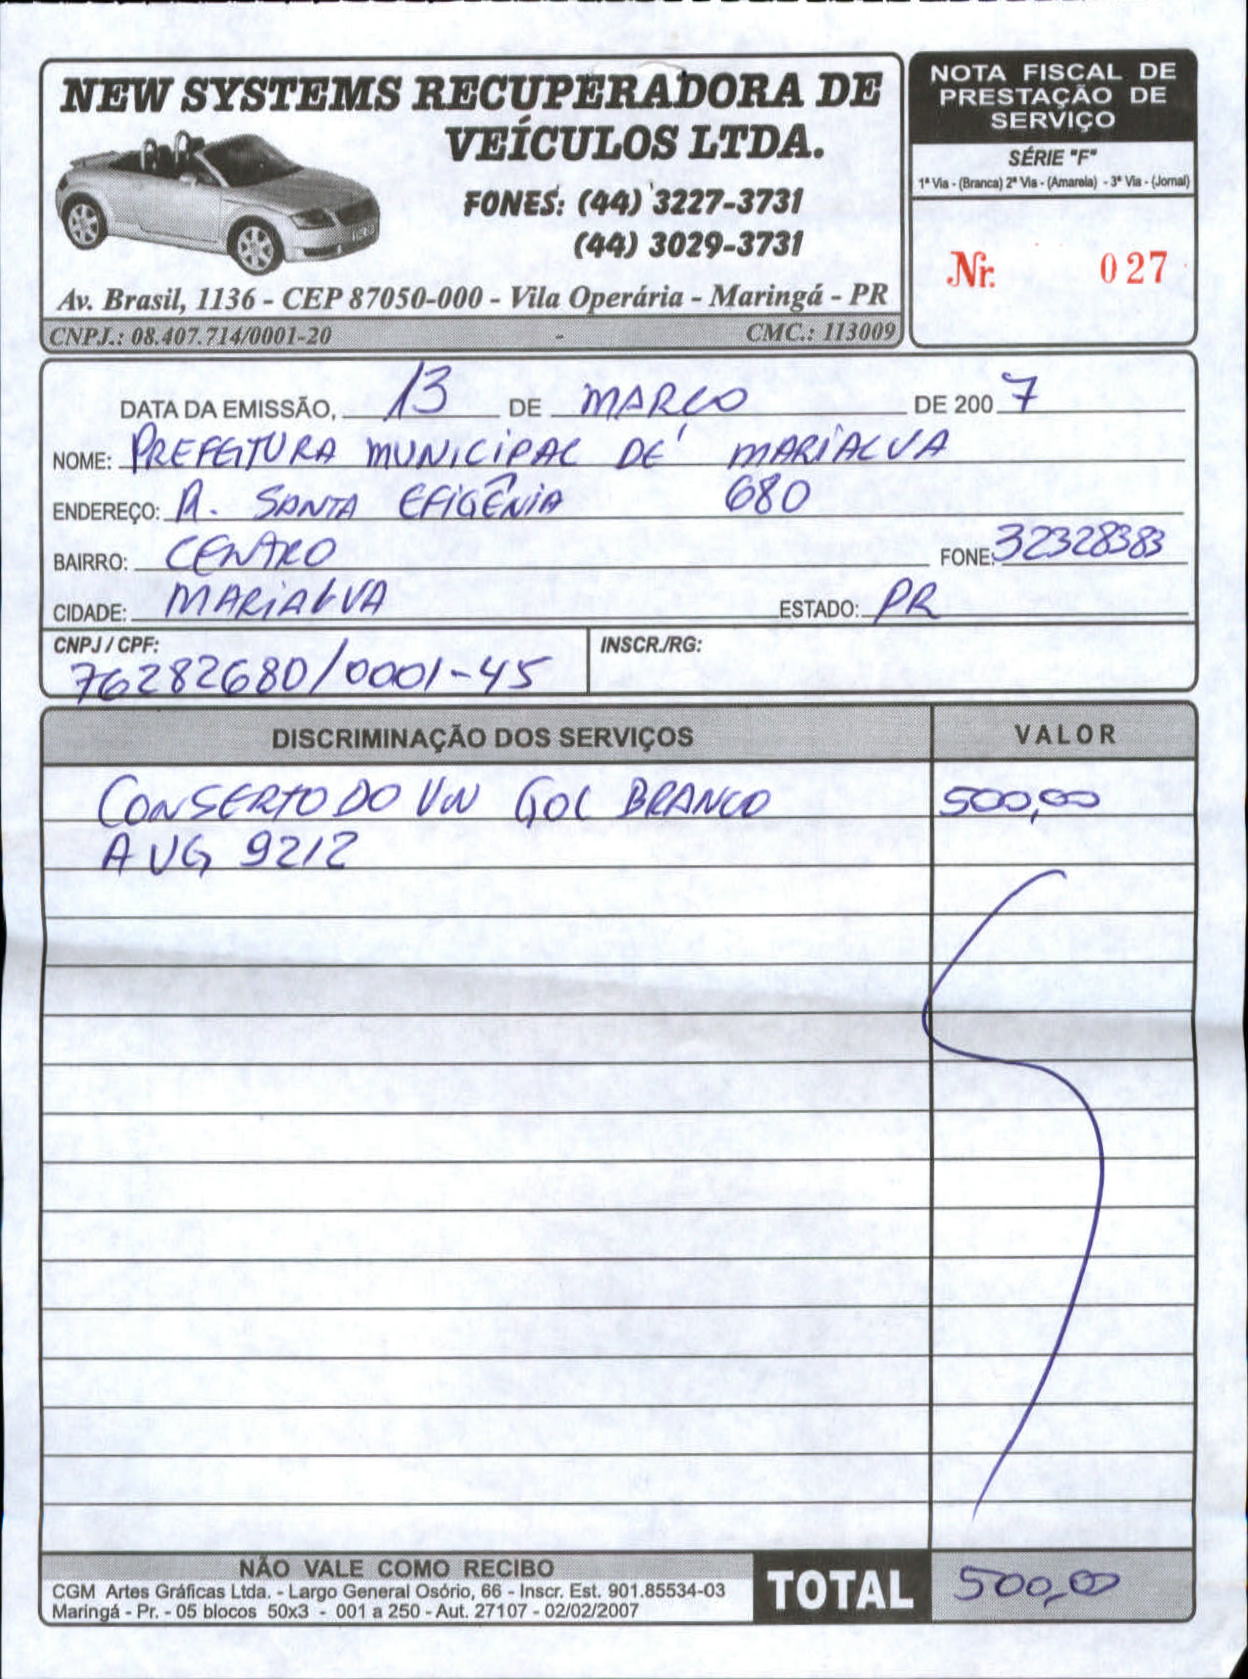 NEW SYSTEMS RECUPERADORA DE
VEÍCULOS LTDA.
FONES: (44) 3227-3731
(44) 3029-3731
Av. Brasil, 1136 - CEP 87050-000 - Vila Operária - Maringá - PR
CNPJ.: 08.407.714/0001-20 - CMC.: 113009
NOTA FISCAL DE
PRESTAÇÃO DE
SERVIÇO
SÉRIE "F"
1ª Via - (Branca) 2ª Via - (Amarela) - 3ª Via - (Jornal)
Nr. 027
DATA DA EMISSÃO, 13 DE MARÇO DE 2007
NOME: PREFEITURA MUNICIPAL DE MARIALVA
ENDEREÇO: R. SANTA EFIGÊNIA 680
BAIRRO: CENTRO FONE: 32328383
CIDADE: MARIALVA ESTADO: PR
CNPJ / CPF: INSCR./RG:
76282680/0001-45
DISCRIMINAÇÃO DOS SERVIÇOS VALOR
CONSERTO DO VW GOL BRANCO 500,00
AVG 9212
NÃO VALE COMO RECIBO
CGM Artes Gráficas Ltda. - Largo General Osório, 66 - Inscr. Est. 901.85534-03
Maringá - Pr. - 05 blocos 50x3 - 001 a 250 - Aut. 27107 - 02/02/2007
TOTAL 500,00